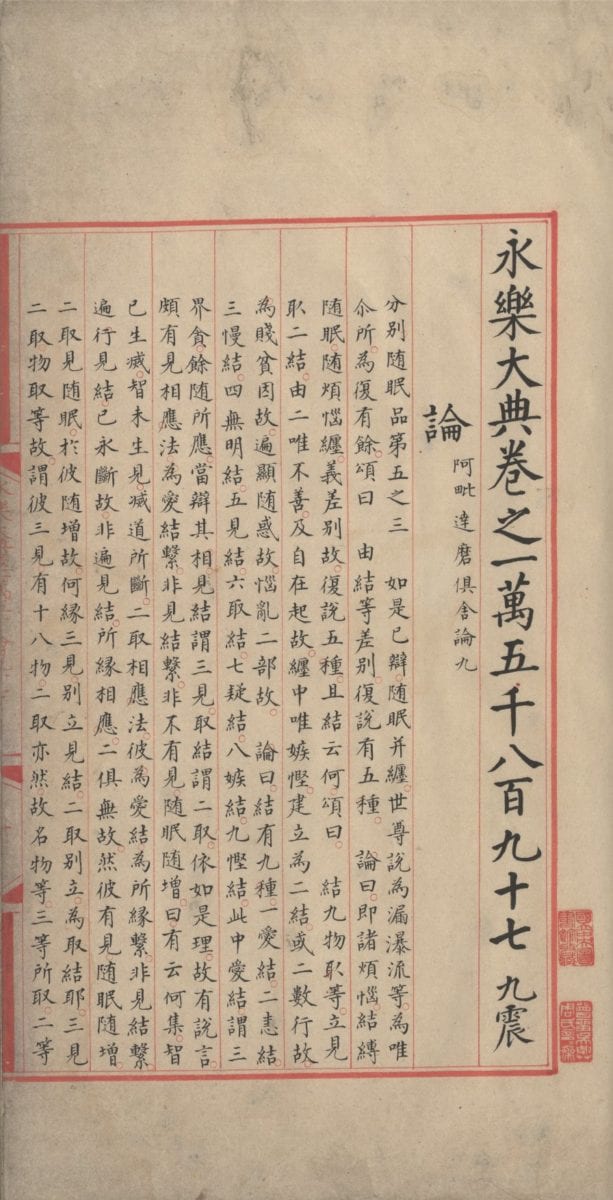 永樂大典卷之一萬五千八百九十七 九震
論 阿毗達磨俱舍論九
分别隨眠品第五之三 如是已辯隨眠并纏世尊說為漏瀑流等為唯
尒所為復有餘頌曰 由結等差别復說有五種 論曰即諸煩惱結縛
隨眠隨煩惱纏義差别故復說五種且結云何頌曰 結九物取等立見
取二結由二唯不善及自在起故纏中唯嫉慳建立為二結或二數行故
為賤貧因故遍顯隨惑故惱亂二部故 論曰結有九種一愛結二恚結
三慢結四無明結五見結六取結七疑結八嫉結九慳結此中愛結謂三
界貪餘隨所應當辯其相見結謂三見取結謂二取依如是理故有說言
頗有見相應法為愛結繫非見結繫非不有見隨眠隨增曰有云何集智
已生滅智未生見滅道所斷二取相應法彼為愛結為所緣繫非見結繫
遍行見結已永斷故非遍見結所緣相應二俱無故然彼有見隨眠隨增
二取見隨眠於彼隨增故何緣三見别立見結二取别立為取結耶三見
二取物取等故謂彼三見有十八物二取亦然故名物等三等所取二等